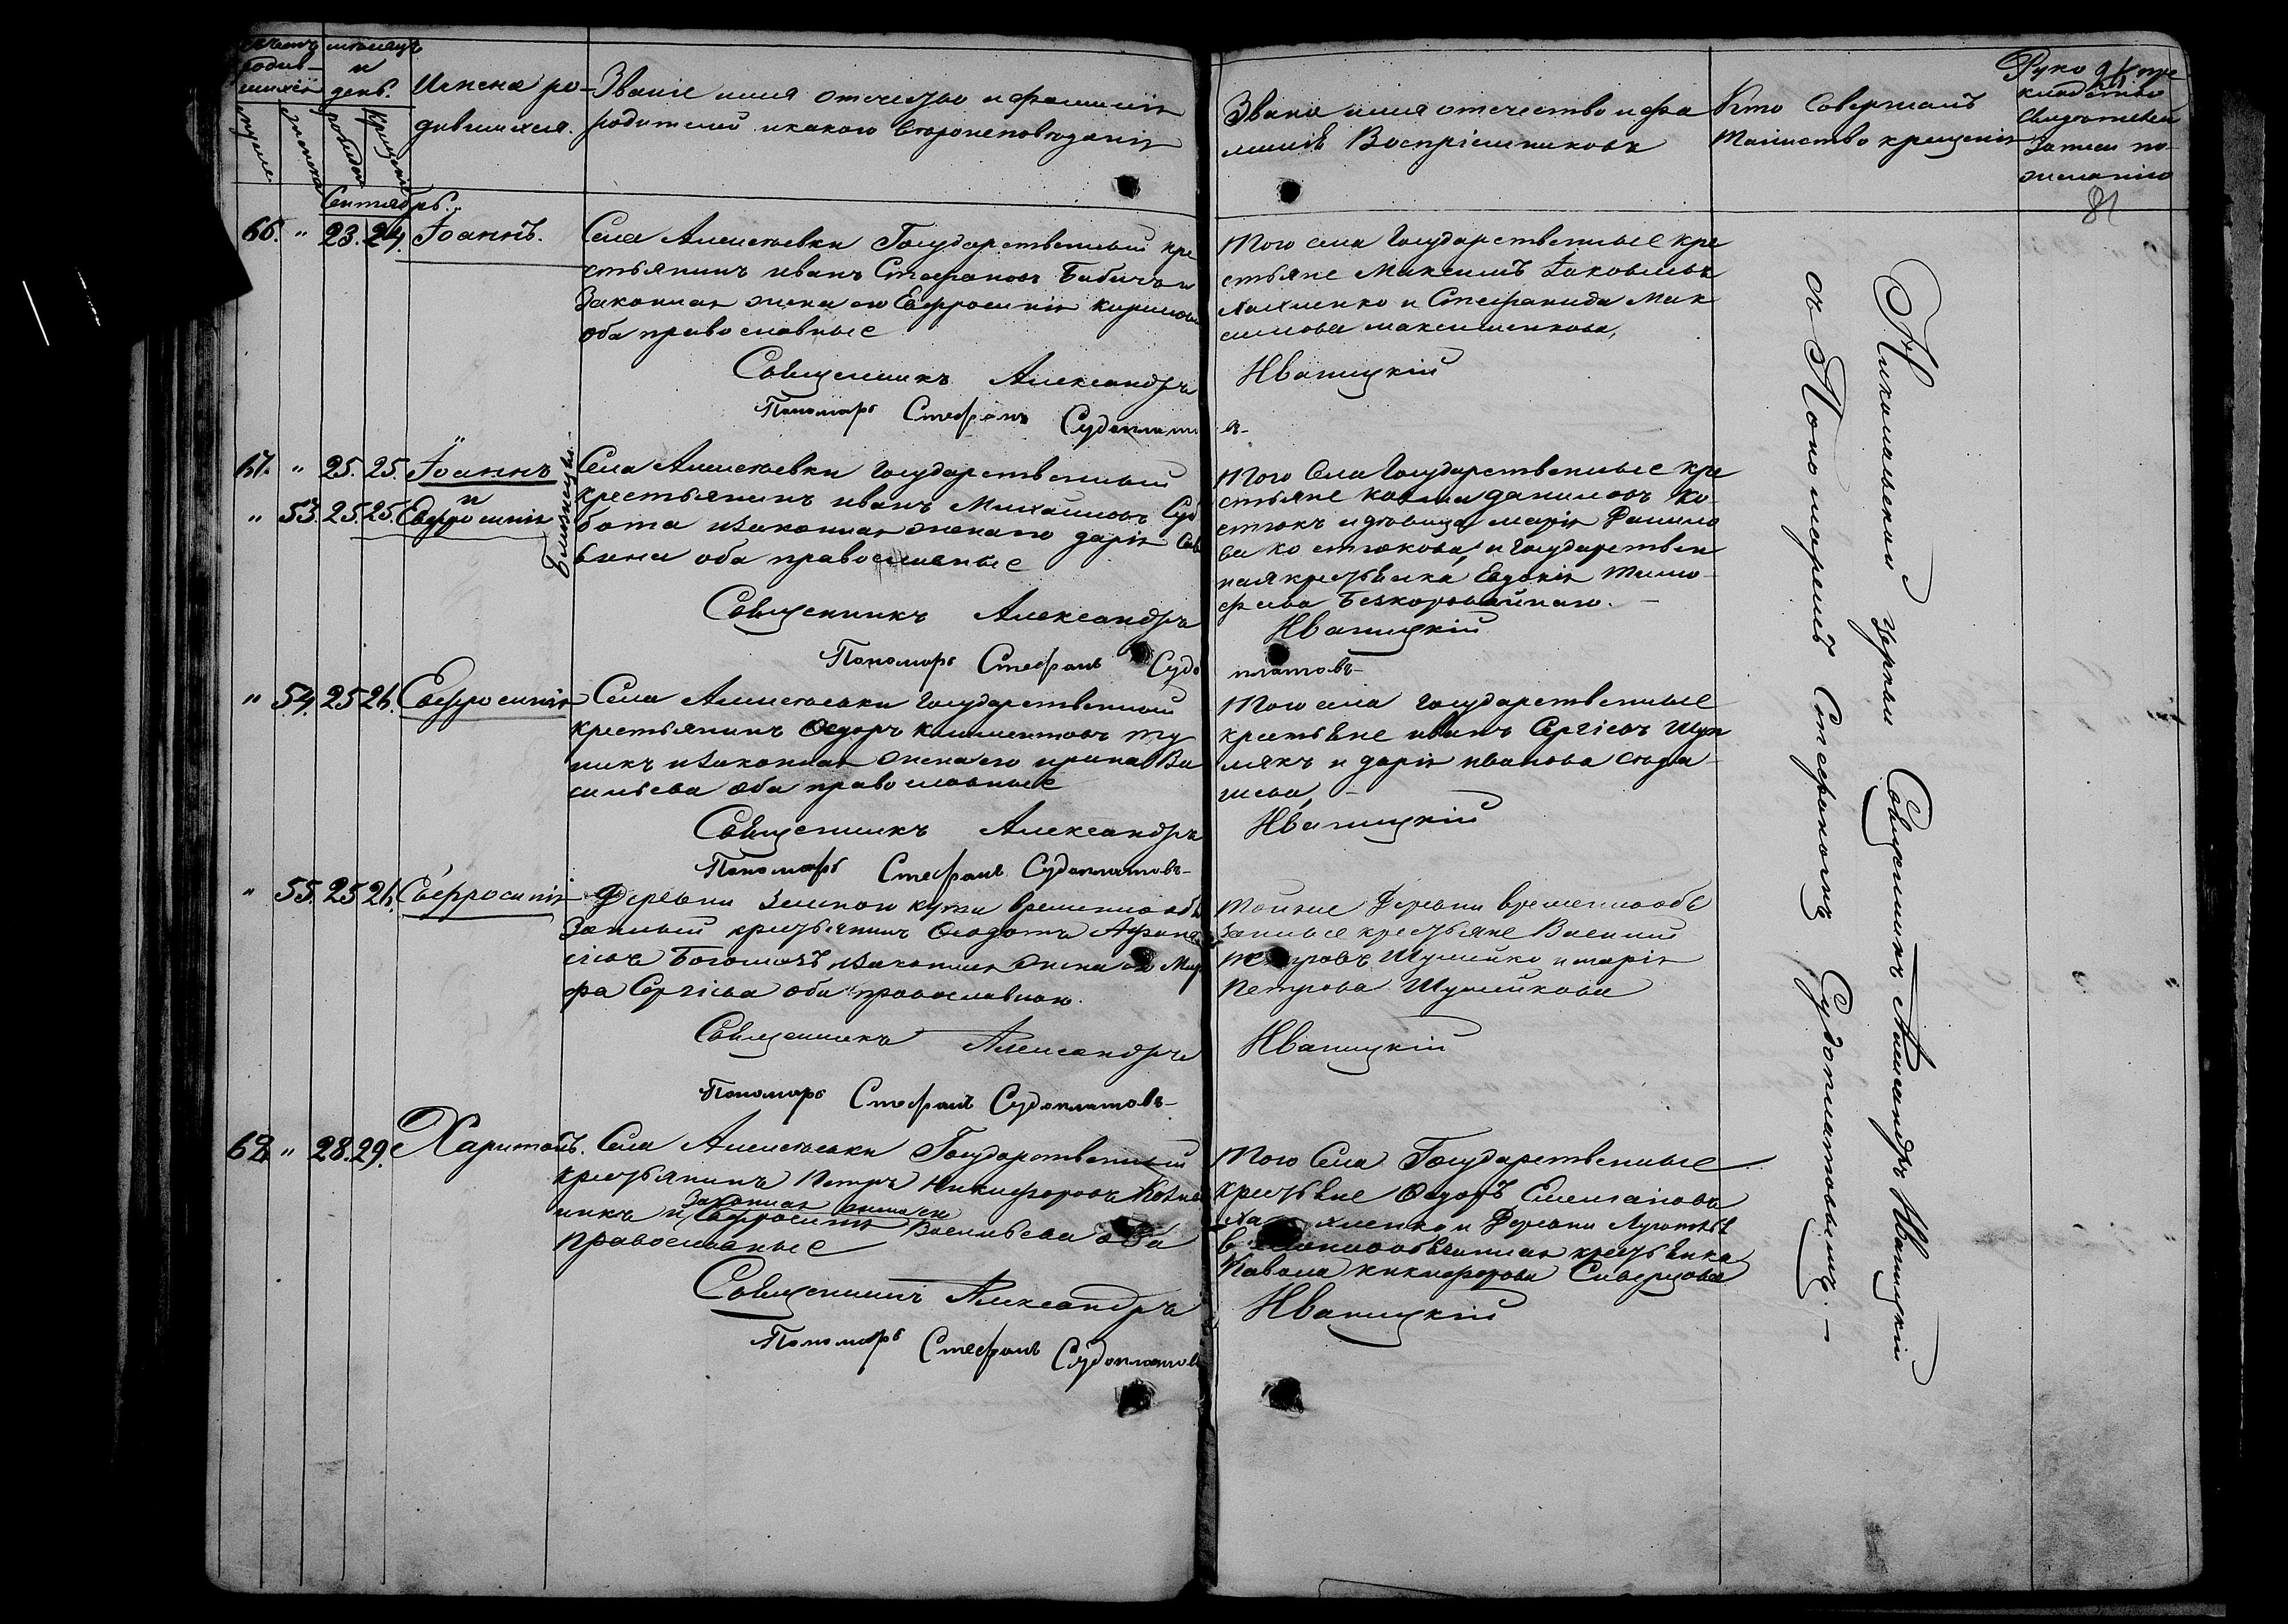 Счетъ родив-
шихся
мужеска
женска
мѣсяцъ
и
день.
рожденія
крещенія
Имена ро-
дившихся.
Званіе имя отечество и фамилія
родителей и какого вѣроисповѣданія
Званіе имя отечество и фа
милія Воспріемниковъ
Кто Совершалъ
таинство крещенія
Руко при
кладство
свидѣтелей
Записи по
желанію
81
Сентябрь.
66. " 23. 24. Іоаннъ.
Села Алексѣевки Государственный кре
стьянинъ иванъ Стефановъ Бабичъ и
Законная жена его Евфросинія кирилова
оба православные
Того села Государственные кре
стьяне Максимъ Іаковлевъ
Лахменко и Стефанида Мак
симова максименкова,
Священникъ Александръ Иваницкій
Пономарь Стефанъ Судоплатовъ
67. " 25. 25. Іоаннъ
и
" 53. 25. 25. Евфросинія
близнецы.
Села Алексѣевки государственный
крестьянинъ иванъ Михайловъ Суб
бота и законная жена его дарія Сав
вина оба православные
Того Села Государственные кре
стьяне косма даниловъ Ко-
стюкъ и дѣвица марія Данило
ва костюкова, и Государствен
ная крестьянка Евдокія Тимо-
феева Безкоровайнаго.
Священникъ Александръ Иваницкій
Пономарь Стефанъ Судоплатовъ
" 54. 25 26. Евфросинія
Села Алексѣевки государственный
крестьянинъ Ѳедоръ климентовъ ту
пикъ и законная жена его ирина Ва
сильева оба православные
Того села государственные
крестьяне иванъ Сергіевъ Шуп
лякъ и дарія иванова
Священникъ Александръ Иваницкій
Пономарь Стефанъ Судоплатовъ
" 55. 25 26. Евфросинія
Деревни временно обя
занный крестьянинъ Ѳеодотъ Афана
сіевъ Богомазъ и законная жена его Мар
фа Сергіева оба православные.
Тойже Деревни временнообя
занные крестьяне Василій
Петровъ Шумейко и марія
Петрова Шумейкова
Священникъ Александръ Иваницкій
Пономарь Стефанъ Судоплатовъ
68. " 28. 29. Харитонъ.
Села Алексѣевки Государственный
крестьянинъ Петръ Никифоровъ
никъ и законная жена его Евфросинія Васильева оба
православные
Того Села Государственные
крестьяне Ѳедоръ Емельяновъ
Лахменко и Деревни
временнообязанная крестьянка
Павола никифорова Сиверцова
Священникъ Александръ Иваницкій
Пономарь Стефанъ Судоплатовъ
Николаевской церкви Священникъ Александръ Иваницкій
съ Пономаремъ Стефаномъ Судоплатовымъ.